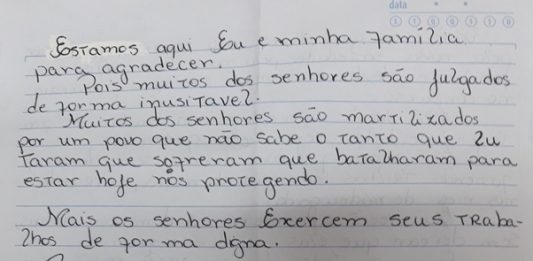 data
Estamos aqui Eu e minha família
para agradecer.
Pois muitos dos senhores são julgados
de forma inusitavel.
Muitos dos senhores são martilizados
por um povo que não sabe o tanto que lu
taram que sofreram que batalharam para
estar hoje nos protegendo.
Mais os senhores Exercem seus Traba-
lhos de forma digna.